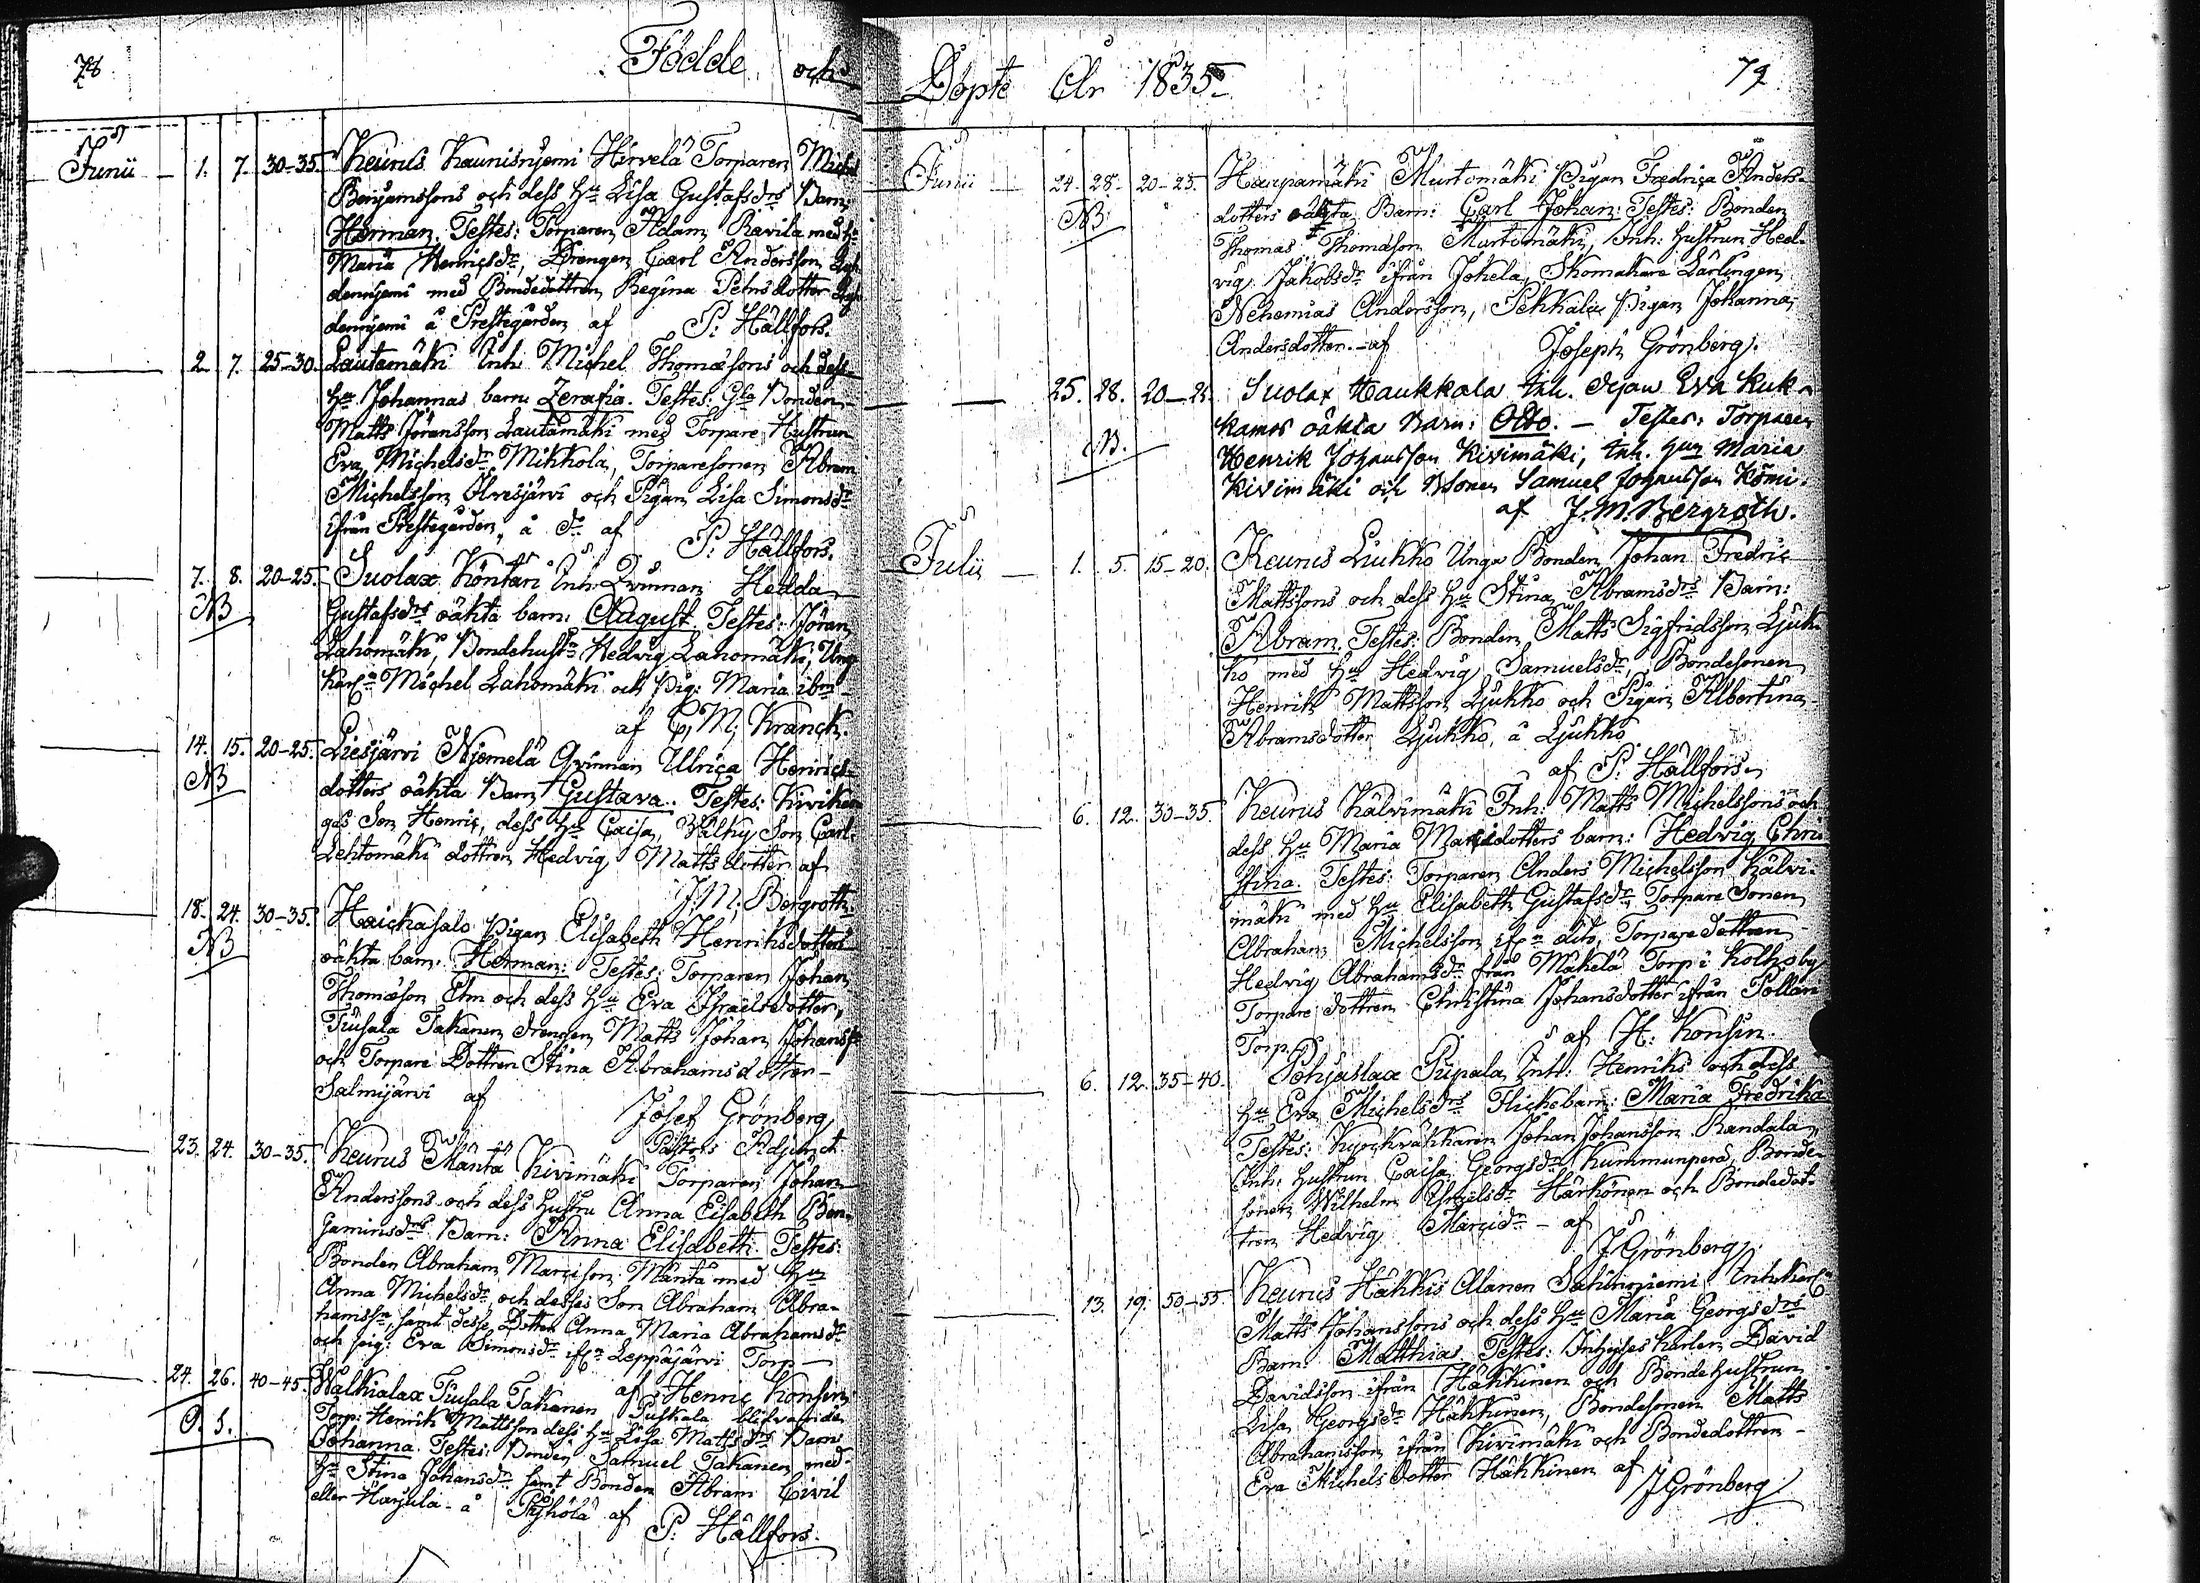 78
Födde och
Junii 1. 7. 30-35. Keurus Kaunisnjemi Hirvelä Torparen Michel
Benjamssons och dess Hu Lisa Gustafsdrs Barn
Herman. Testes: Torparen Adam Ravila med Hu
Maria Henricsdr, Drengen Carl Andersson
dennjemi med Bondedottren Regina Petersdotter
dennjemi å Prestegården af P: Hällfors.
2. 7. 25-30. Lautamäki Inh: Michel Thomæsons och dess
Hu Johannas barn Zerafia. Testes: Gla Bonden
Matts Jöransson Lautamäki med Torpare Hustrun
Eva Michelsdr Mikkola, Torparesonen Abram
Michelsson Olvesjärvi och Pigan Lisa Simonsdr
ifrån Prestegården, å do af P: Hällfors.
7. 8. 20-25. Suolax Köntäri Inh: Qvinnan Hedda
NB Gustafsdrs oäkta barn: August. Testes: Jöran
Lahomäki, Bondehustn Hedvig Lahomäki, Ung
karln Michel Lahomäki och Pig: Maria ibm
af C. M. Kranck.
14. 15. 20-25. Liesjärvi Njemelä Qvinnan Ulrica Henrics
NB dotters oäkta Barn Gustava. Testes: Kiviken
gas Son Henric, dess Hu Caisa, Välky Son Carl
Lehtomäki dottren Hedvig Mattsdotter af
J. M. Bergroth.
18. 24. 30-35. Haickasalo Pigan Elisabeth Henriksdotters
NB oäkta barn. Herman: Testes: Torparen Johan
Thomæson Elm och dess Hu Eva Israelsdotter,
Tiusala Takanen drengen Matts Johan Johanss
och Torpare Dottren Stina Abrahamsdotter
Salmijärvi af Josef Grönberg
Pastors Adjunct.
23. 24. 30-35. Keurus Mänttä Kivimäki Torparen Johan
Anderssons och dess hustru Anna Elisabeth Ben
jaminsdrs Barn: Anna Elisabeth. Testes:
Bonden Abraham Marcison Mänttä med Hun
Anna Michelsdr och desses Son Abraham Abra-
hamssn, samt desse Dotter Anna Maria Abrahamsdr
och pig: Eva Simonsdr ifrn Leppäjärvi Torp
af Henric Konsin
24. 26. 40-45. Walkialax Tiusala Takanen Puskala blifvande
O. S. Torp: Henrik Mattsson dess Hu Lisa Mattsdrs Barn
Johanna. Testes: Bonden Samuel Takanen med
Hu Stina Johansdr samt Bonden Abram Civil
eller Harjula - å Pyhölä af
P: Hällfors.
Döpte År 1835
79
Junii 24. 28. 20-25. Harpamäki Murtomäki Pigan Fredrica Anders-
NB dotters oäkta Barn: Carl Johan: Testes: Bonden
Thomas Thomæson Murtomäki, Inh: hustrun Hed-
vig Jakobsdr ifrån Jokela, Skomakare Lärlingen
Nehemias Andersson, Pekkala Pigan Johanna
Andersdotter. - af Joseph Grönberg.
25. 28. 20-25. Suolax Haukkala Inh. Pigan Eva Kuk-
NB. kamos oäkta Barn: Otto. - Testes: Torparen
Henrik Johansson Kivimäki, Inh. hun Maria
Kivimäki och Bsonen Samuel Johansson Kömi.
af J. M. Bergroth.
Julii 1. 5. 15-20. Keurus Liukko Unga Bonden Johan Fredric
Mattssons och dess Hu Stina Abramsdrs Barn:
Abram. Testes: Bonden Matts Sigfridsson Ljuk-
ko med Hu Hedvig Samuelsdr, Bondesonen
Henrik Mattsson Ljukko och Pigan Albertina
Abramsdotter Ljukko, å Ljukko
af P: Hällfors.
6. 12. 30-35. Keurus Kälvimäki Inh: Matts Michelssons och
dess Hu Maria Marcidotters barn: Hedvig Chri
stina. Testes: Torparen Anders Michelsson Kälvi-
mäki med Hu Elisabeth Gustafsdr Torpare Sonen
Abraham Michelsson ifrn dito, Torpare Dottren
Hedvig Abrahamsdr från Mäkelä Torp i Kolhoby
Torpare dottren Christina Johansdotter ifrån Pollari
Torp. af H. Konsin.
6. 12. 35-40. Pohjaslax Pirpala Inh: Henriks och dess
Hu Eva Michelsdrs Flickebarn: Maria Fredrika
Testes: Kyrckväkkaren Johan Johansson Randala,
Inh. hustrun Caisa Georgsdr Kummunperä, Bonde-
sonen Wilhelm Härkönen och Bondedot-
tren Hedvig Marcidr - af
J Grönberg.
13. 19. 50-55. Keurus Häkkis Alanen Sahinniemi Inh:karln
Matts Johanssons och dess Hu Maria Georgsdrs
Barn. Matthias. Testes: Inhyses karlen David
Davidsson ifrån Häkkinen och Bondehustrun
Lisa Georgsdr Häkkinen, Bondesonen Matts
Abrahamsson ifrån Kivimäki och Bondedottren
Eva Michelsdotter Häkkinen af
J Grönberg